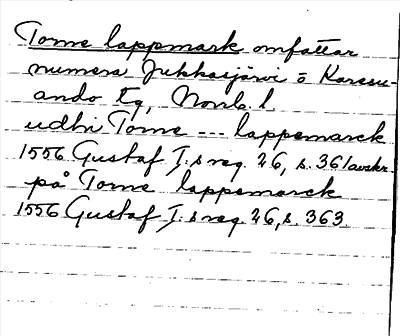 Torne lappmark omfattar
numera Jukkasjärvi o Karesu-
ando tg, Norrb. l.
udhi Torne --- lappemarck
1556 Gustaf I:s reg. 26, s. 361 avskr.
på Torne lappemarck
1556 Gustaf I:s reg. 26, s. 363